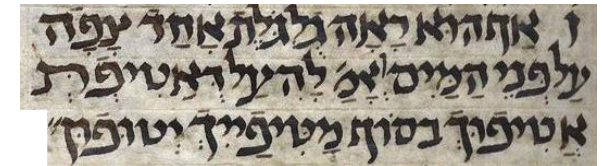 ו אַף הוּא רָאָה גֻּלְגֹּלֶת אַחַד צָפָה
עַל פְּנֵי הַמַּיִם אָמַ' לָהּ עַל דַּאֲטֵיפְתְּ
אַטִיפוּךְ בסוֹף מַטִּיפַיִיךְ יְטוּפוּן